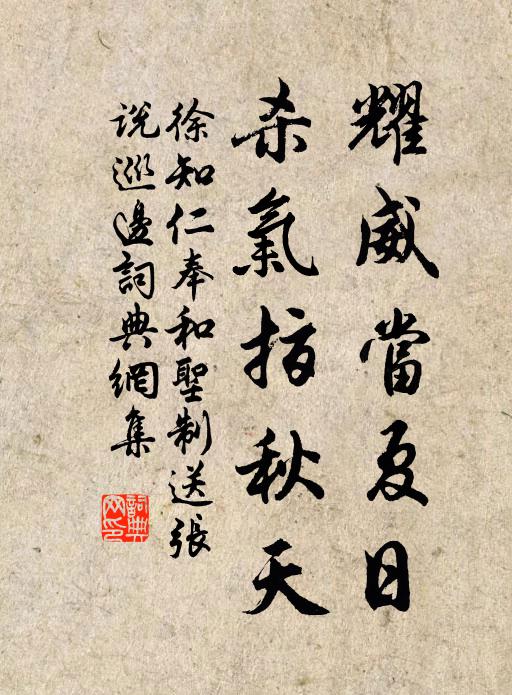 耀威當夏日
杀氣指秋天
徐知仁奉和聖制送張
说巡邊詞典網集
詞典网印